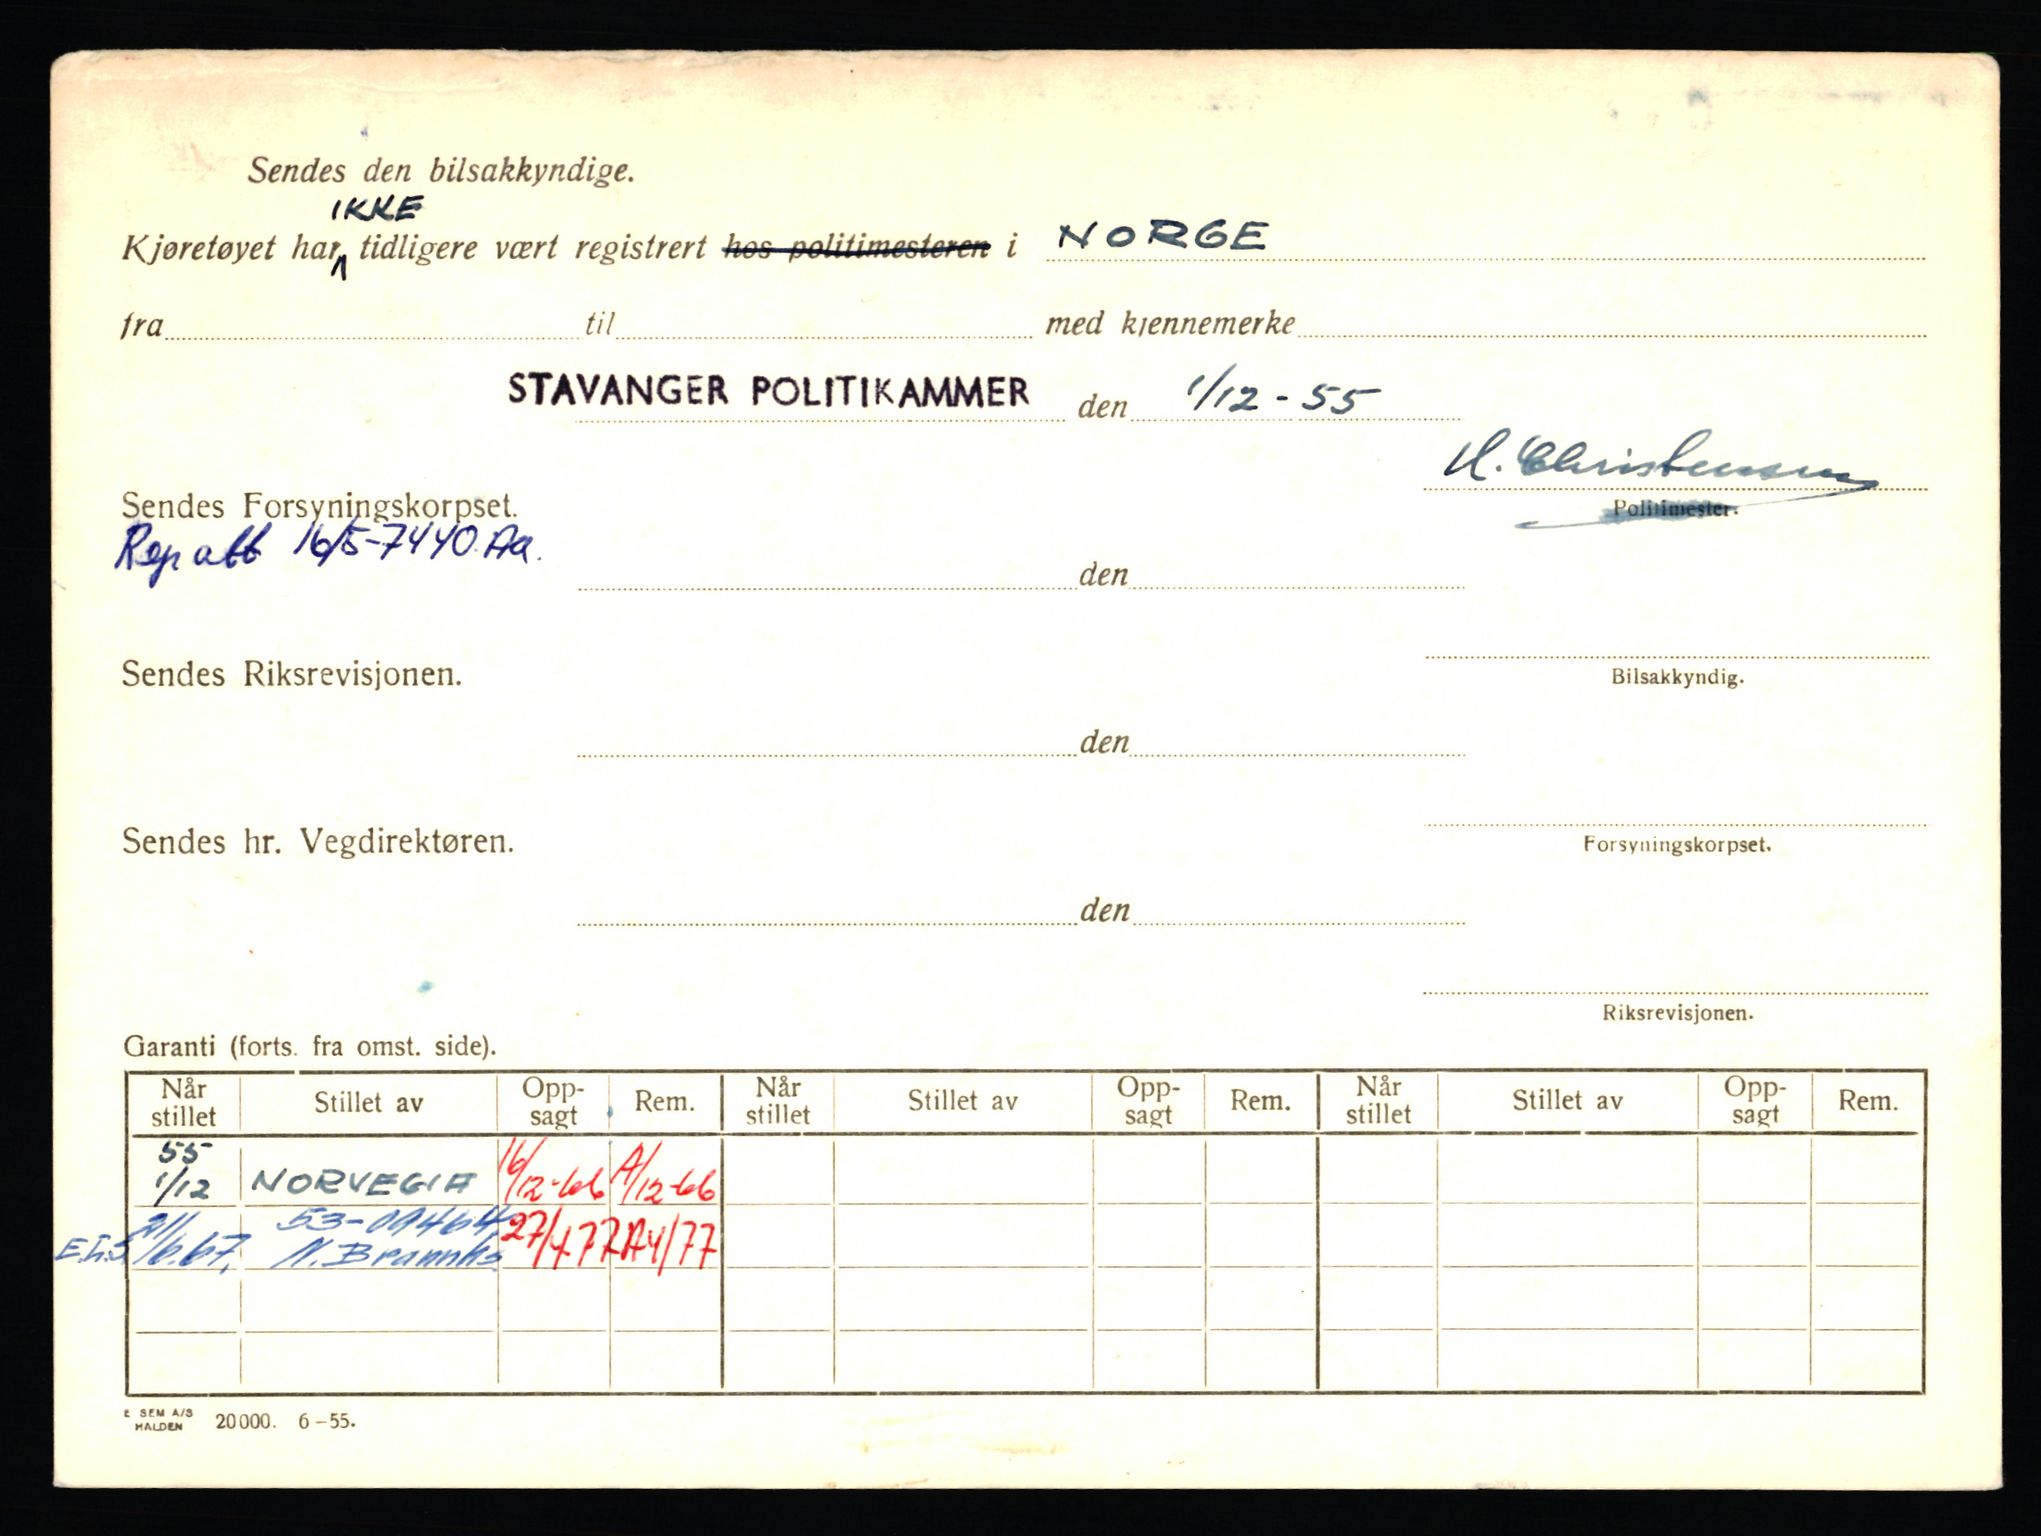 Sendes den bilsakkyndige.
IKKE
Kjøretøyet har tidligere vært registrert hos politimesteren i NORGE
fra til med kjennemerke
STAVANGER POLITIKAMMER den 1/12-55
H. Christensen
Sendes Forsyningskorpset. Politimester.
Rep att 16/5-74 40. Aa.
den
Sendes Riksrevisjonen. Bilsakkyndig.
den
Sendes hr. Vegdirektøren. Forsyningskorpset.
den
Riksrevisjonen.
Garanti (forts. fra omst. side).
Når stillet Stillet av Opp-sagt Rem. Når stillet Stillet av Opp-sagt Rem. Når stillet Stillet av Opp-sagt Rem.
55
1/12 NORVEGIA 16/12-66 A/12-66
21/6.67. 53-09464 27/4 77 A4/77
N. Brannks.
E SEM A/S
HALDEN 20000. 6-55.